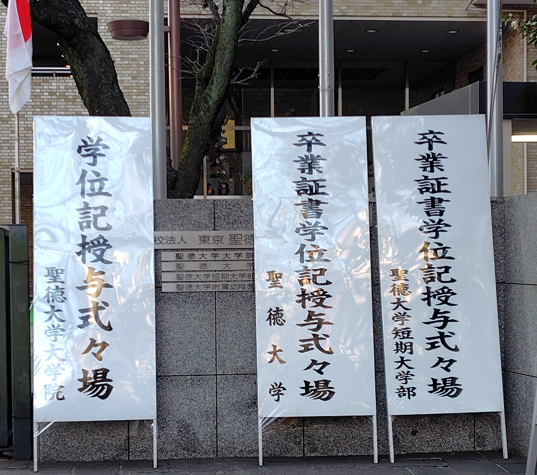 卒業証書学位記授与式々場
聖徳大学短期大学部
卒業証書学位記授与式々場
聖徳大学
学位記授与式々場
聖徳大学大学院
校法人 東京聖徳
聖徳大学大学院
聖徳大学
聖徳大学短期大学部
聖徳大学附属幼稚園